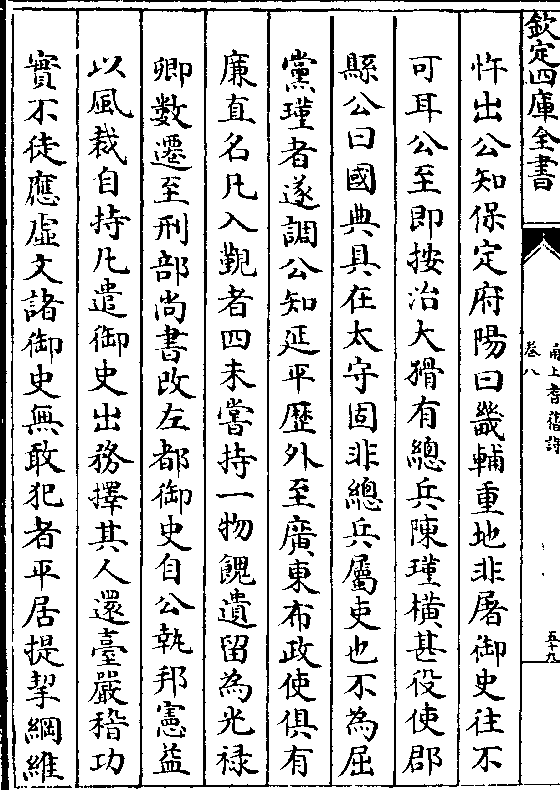 欽定四庫全書
甬上耆舊詩
卷八
五十九
忤出公知保定府陽曰畿輔重地非屠御史往不
可耳公至即按治大猾有總兵陳瑾橫甚役使郡
縣公曰國典具在太守固非總兵屬吏也不為屈
黨瑾者遂調公知延平歴外至廣東布政使俱有
廉直名凡入覲者四未嘗持一物餽遺留為光禄
卿數遷至刑部尚書改左都御史自公執邦憲益
以風裁自持凡遣御史出務擇其人還臺嚴稽功
實不徒應虛文諸御史無敢犯者平居提挈綱維